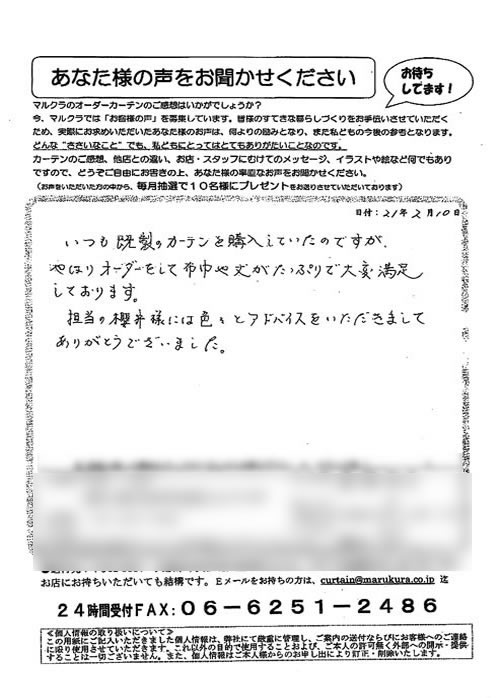 あなた様の声をお聞かせください
お待ち
してます!
マルクラのオーダーカーテンのご感想はいかがでしょうか?
今、マルクラでは「お客様の声」を募集しています。皆様のすてきな暮らしづくりをお手伝いさせていただく
ため、実際にお求めいただいたあなた様のお声は、何よりの励みとなり、また私どもの今後の参考となります。
どんな“ささいなこと”でも、私どもにとってはとてもありがたいことなのです。
カーテンのご感想、他店との違い、お店・スタッフにむけてのメッセージ、イラストや絵など何でもあり
ですので、どうぞご自由にお書きの上、あなた様の率直なお声をお聞かせください。
(お声をいただいた方の中から、毎月抽選で10名様にプレゼントをお送りさせていただいております)
日付:21年2月10日
いつも既製のカーテンを購入していたのですが、
やはりオーダーをして布巾や丈がたっぷりで大変満足
しております。
担当の櫻井様には色々とアドバイスをいただきまして
ありがとうございました。
お店にお持ちいただいても結構です。Eメールをお持ちの方は、curtain@marukura.co.jp 迄
24時間受付FAX:06-6251-2486
≪個人情報の取り扱いについて≫
この用紙にご記入いただきました個人情報は、弊社にて厳重に管理し、ご案内の送付ならびにお客様へのご連絡
に限り使用させていただきます。これ以外の目的で使用することおよび、ご本人の許可無く外部への開示・提供
することは一切ございません。また、個人情報はご本人様からのお申し出により訂正・削除いたします。